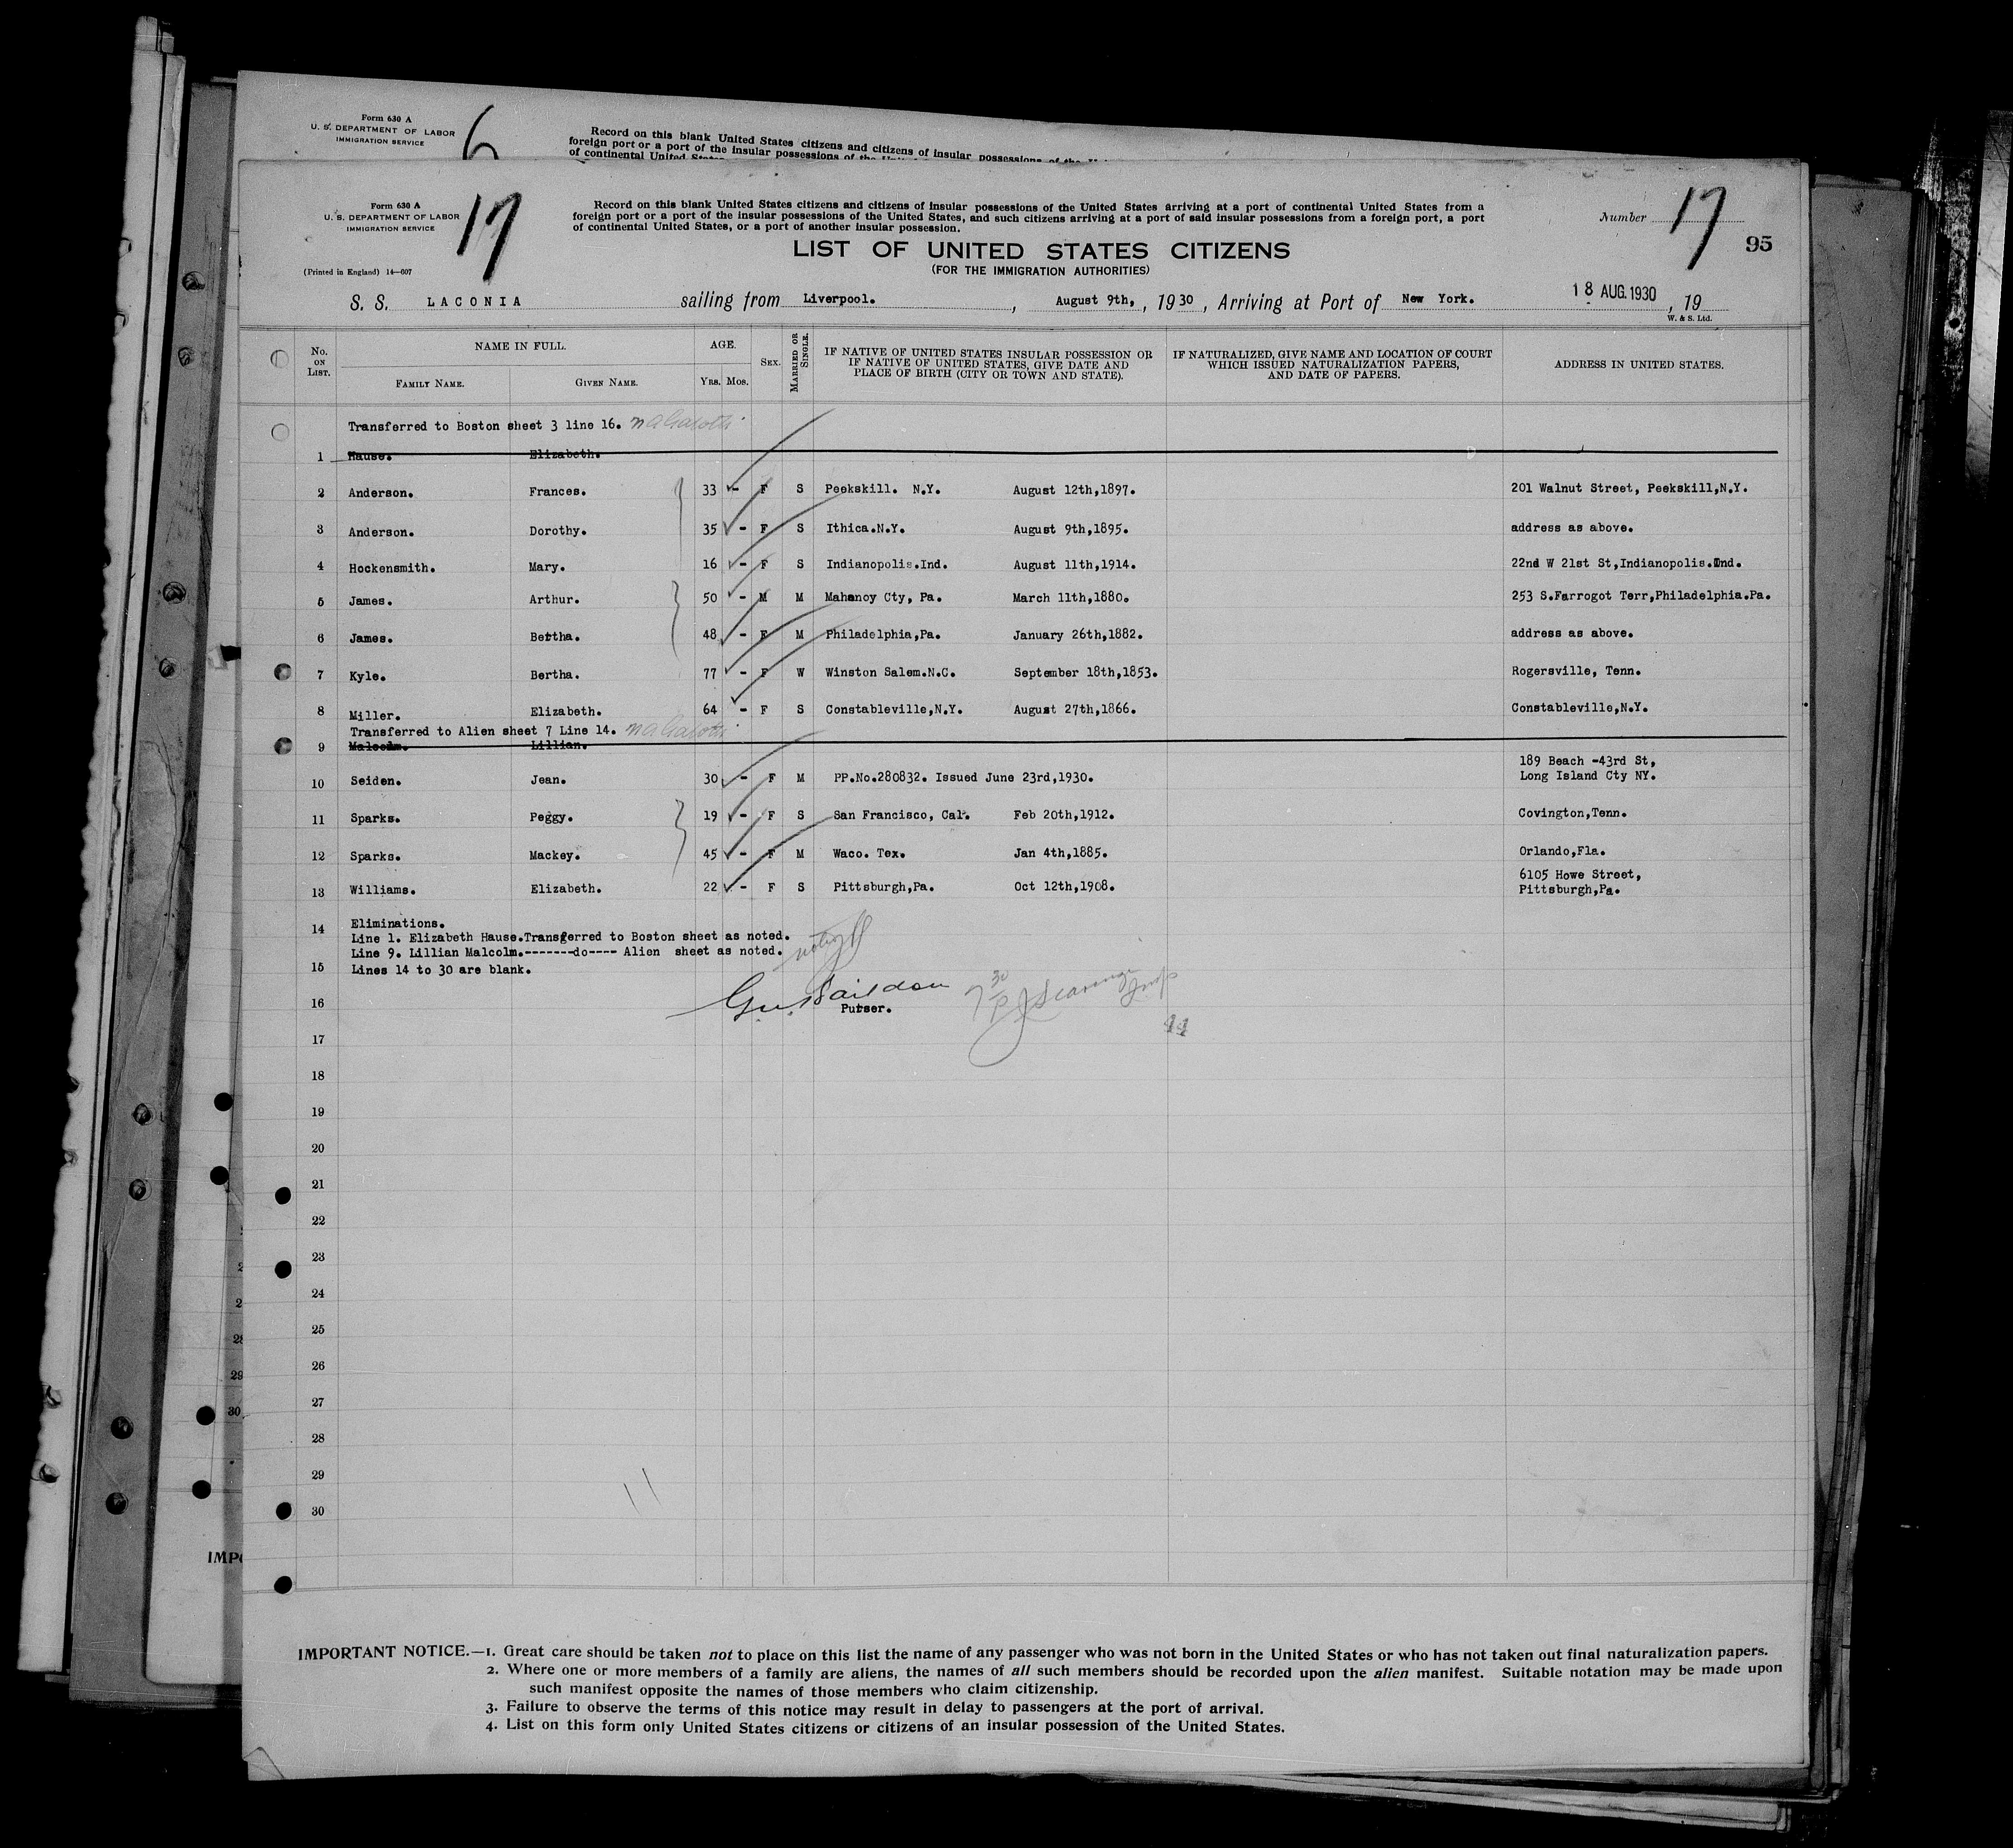 Form 630 A
U. S. DEPARTMENT OF LABOR
IMMIGRATION SERVICE
6
Record on this blank United States citizens and citizens of insular possessions of the
foreign port or a port of the insular possessions of the
of continental United States
Form 630 A
U. S. DEPARTMENT OF LABOR
IMMIGRATION SERVICE
17
(Printed in England) 14—607
Record on this blank United States citizens and citizens of insular possessions of the United States arriving at a port of continental United States from a
foreign port or a port of the insular possessions of the United States, and such citizens arriving at a port of said insular possessions from a foreign port, a port
of continental United States, or a port of another insular possession.
Number 17
95
LIST OF UNITED STATES CITIZENS
(FOR THE IMMIGRATION AUTHORITIES)
S. S. LACONIA sailing from Liverpool. , August 9th, , 19 30 , Arriving at Port of New York. 18 AUG. 1930 , 19
W. & S. Ltd.
No. ON LIST.
NAME IN FULL.
FAMILY NAME. GIVEN NAME.
AGE.
YRS. MOS.
SEX.
MARRIED OR SINGLE.
IF NATIVE OF UNITED STATES INSULAR POSSESSION OR
IF NATIVE OF UNITED STATES, GIVE DATE AND
PLACE OF BIRTH (CITY OR TOWN AND STATE).
IF NATURALIZED, GIVE NAME AND LOCATION OF COURT
WHICH ISSUED NATURALIZATION PAPERS,
AND DATE OF PAPERS.
ADDRESS IN UNITED STATES.
Transferred to Boston sheet 3 line 16.
1 Hause. Elizabeth.
2 Anderson. Frances. 33 - F S Peekskill. N.Y. August 12th,1897. 201 Walnut Street, Peekskill,N.Y.
3 Anderson. Dorothy. 35 - F S Ithica.N.Y. August 9th,1895. address as above.
4 Hockensmith. Mary. 16 - F S Indianopolis.Ind. August 11th,1914. 22nd W 21st St,Indianopolis.Ind.
5 James. Arthur. 50 - M M Mahanoy Cty, Pa. March 11th,1880. 253 S.Farrogot Terr,Philadelphia.Pa.
6 James. Bertha. 48 - F M Philadelphia,Pa. January 26th,1882. address as above.
7 Kyle. Bertha. 77 - F W Winston Salem.N.C. September 18th,1853. Rogersville, Tenn.
8 Miller. Elizabeth. 64 - F S Constableville,N.Y. August 27th,1866. Constableville,N.Y.
Transferred to Alien sheet 7 Line 14.
9 Malcolm. Lillian.
189 Beach -43rd St,
10 Seiden. Jean. 30 - F M PP.No.280832. Issued June 23rd,1930. Long Island Cty NY.
11 Sparks. Peggy. 19 - F S San Francisco, Cal. Feb 20th,1912. Covington,Tenn.
12 Sparks. Mackey. 45 - F M Waco. Tex. Jan 4th,1885. Orlando,Fla.
13 Williams. Elizabeth. 22 - F S Pittsburgh,Pa. Oct 12th,1908. 6105 Howe Street,
Pittsburgh,Pa.
14 Eliminations.
Line 1. Elizabeth Hause.Transferred to Boston sheet as noted.
Line 9. Lillian Malcolm.-------do---- Alien sheet as noted.
15 Lines 14 to 30 are blank.
16 Purser.
44
17
18
19
20
21
22
23
24
25
26
27
28
29
30
28
29
30
IMPO
IMPORTANT NOTICE.—1. Great care should be taken not to place on this list the name of any passenger who was not born in the United States or who has not taken out final naturalization papers.
2. Where one or more members of a family are aliens, the names of all such members should be recorded upon the alien manifest. Suitable notation may be made upon
such manifest opposite the names of those members who claim citizenship.
3. Failure to observe the terms of this notice may result in delay to passengers at the port of arrival.
4. List on this form only United States citizens or citizens of an insular possession of the United States.